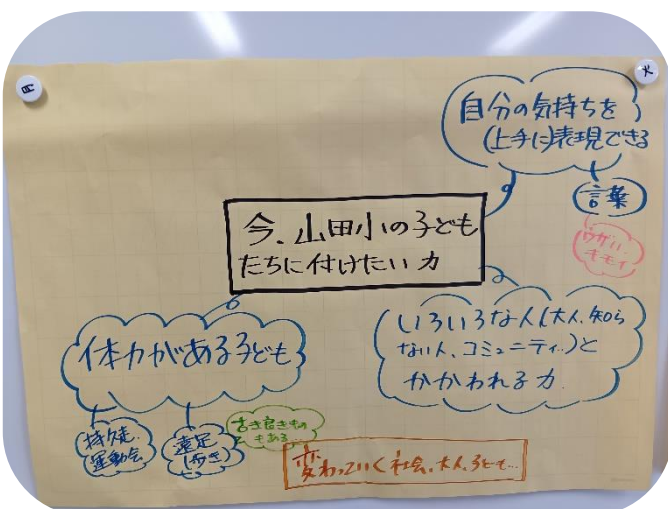 月
火
自分の気持ちを
(上手に)表現できる
言葉
ウザい.
キモイ
今、山田小の子ども
たちに付けたい力
いろいろな人(大人、知ら
ない人、コミュニティ…)と
かかわれる力.
体力がある子ども
持久走.
運動会
遠足
(歩き)
古き良きもの
ともある
変わっていく社会、大人、子ども…